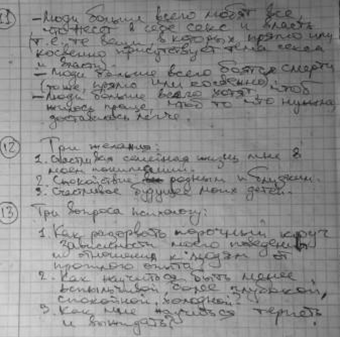 11 – Люди больше всего любят все
что несет в себе секс и власть
(т.е. то вещи, в которых прямо или
косвенно присутствует тема секса
и власти).
– Люди больше всего боятся смерти
(тоже, прямо или косвенно)
– Люди больше всего хотят, чтоб
жилось проще, чтоб то что нужно,
доставалось легче.
12 Три желания:
1. Счастливая семейная жизнь мне в
моем понимании.
2. Спокойствие родным и близким.
3. Счастливое будущее моих детей.
13 Три вопроса психологу:
1. Как разорвать порочный круг
зависимости моего поведения
и отношения к людям от
прошлого опыта?
2. Как научиться быть менее
вспыльчивой, более
спокойной, холодной?
3. Как мне научиться терпеть
и выжидать?